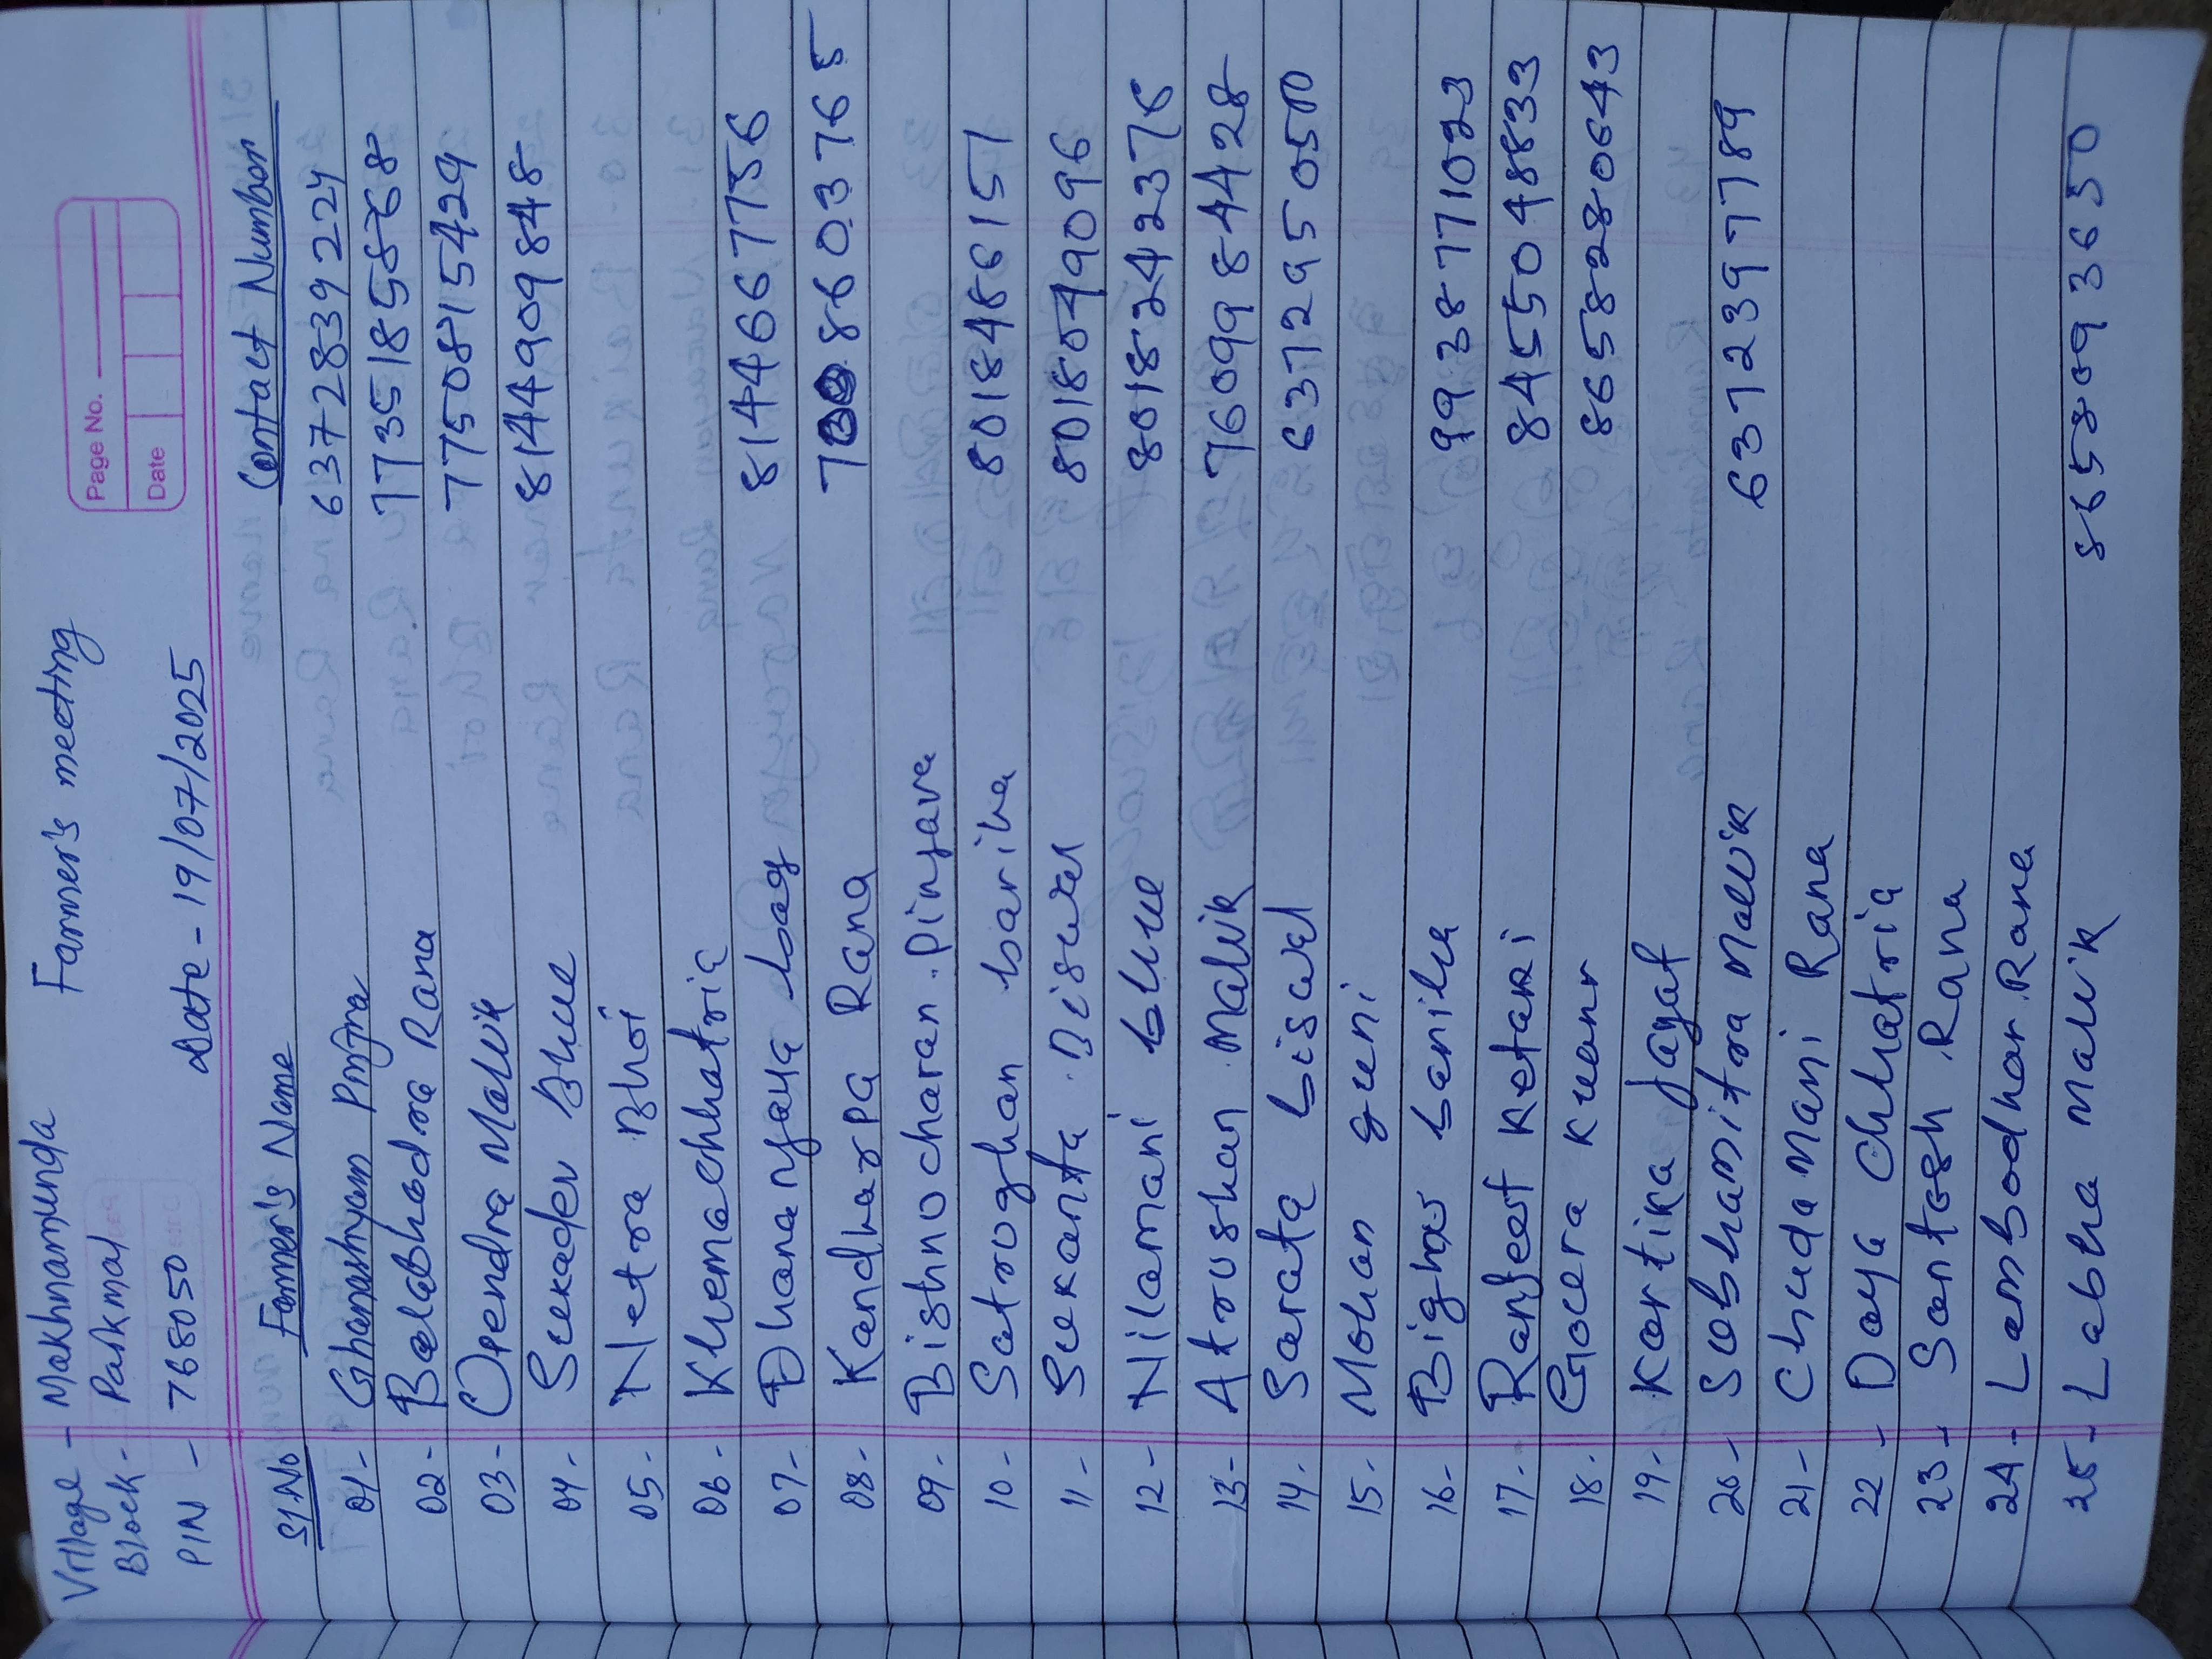 Page No.
Date
Village - Makhnamunda Farmer's meeting
Block - Paikmal
PIN - 768050 Date - 19/07/2025
Sl.No Farmer's Name Contact Number
01- Ghanashyam Pinjra 6372839224
02- Balabhadra Rana 7735185868
03- Upendra Malik 7750815429
04- Sukadev Bhue 8144909848
05- Netra Bhoi
06- Khemachhatria
07- Dhananjaya bag 8144667756
08- Kandharpa Rana 8603765
09- Bishnocharan. Pinjara
10- Satrughan barika 8018486151
11- Sukanta. Biswal 8018049096
12- Nilamani bhue 8018242376
13- Atrushan. Malik 7609984428
14- Sarata bisal 63729505
15- Mohan guni
16- Bighna barika 9938771023
17- Ranjeet Ketaki 8455048833
18. Goura Kuanr 8658280643
19- Kartika Jagat
20- Subhamitra Malik 6372397789
21- Chuda Mani Rana
22- Daya Chhatria
23- Santosh Rana
24- Lambodhar. Rana
25- Labha Malik 8658093650